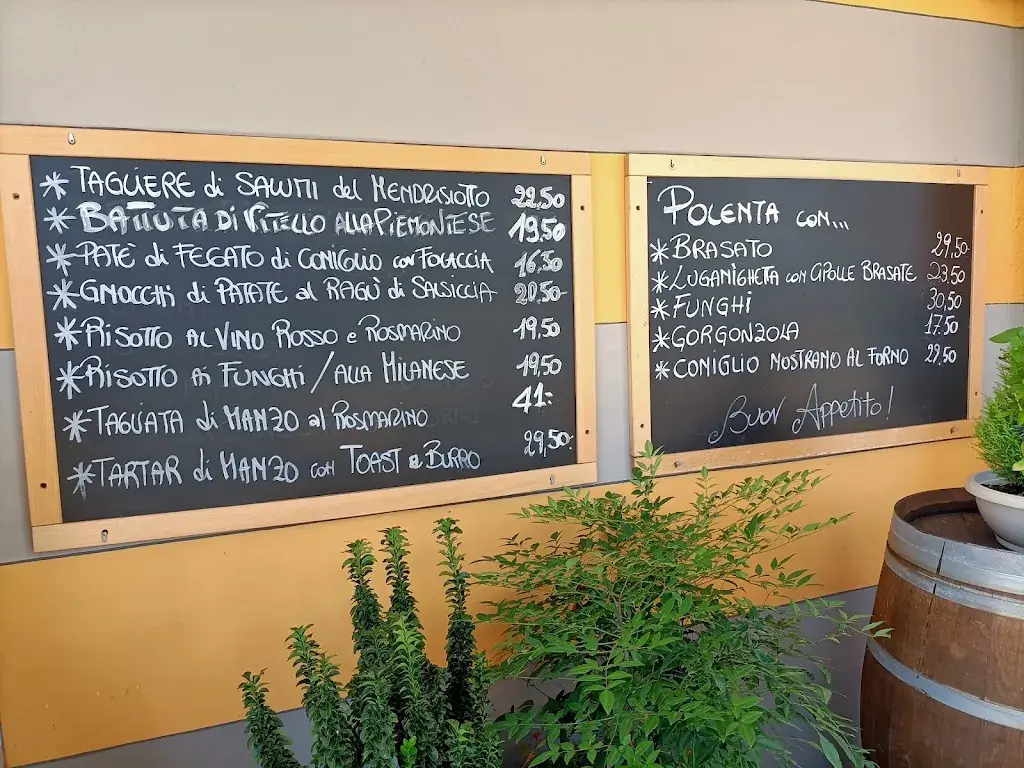 * TAGLIERE di SALUMI del MENDRISIOTTO 22,50
* BATTUTA DI VITELLO ALLA PIEMONTESE 19,50
* PATÈ di FEGATO di CONIGLIO con FOCACCIA 16,50
* GNOCCHI di PATATE al RAGÙ di SALSICCIA 20,50-
* RISOTTO AL VINO ROSSO e ROSMARINO 19,50
* RISOTTO AI FUNGHI / ALLA MILANESE 19,50
* TAGLIATA di MANZO al ROSMARINO 41.-
* TARTAR di MANZO con TOAST e BURRO 29,50-
POLENTA con...
* BRASATO 29,50-
* LUGANIGHETA con CIPOLLE BRASATE 23,50
* FUNGHI 30,50
* GORGONZOLA 17,50
* CONIGLIO NOSTRANO AL FORNO 29,50
Buon Appetito!